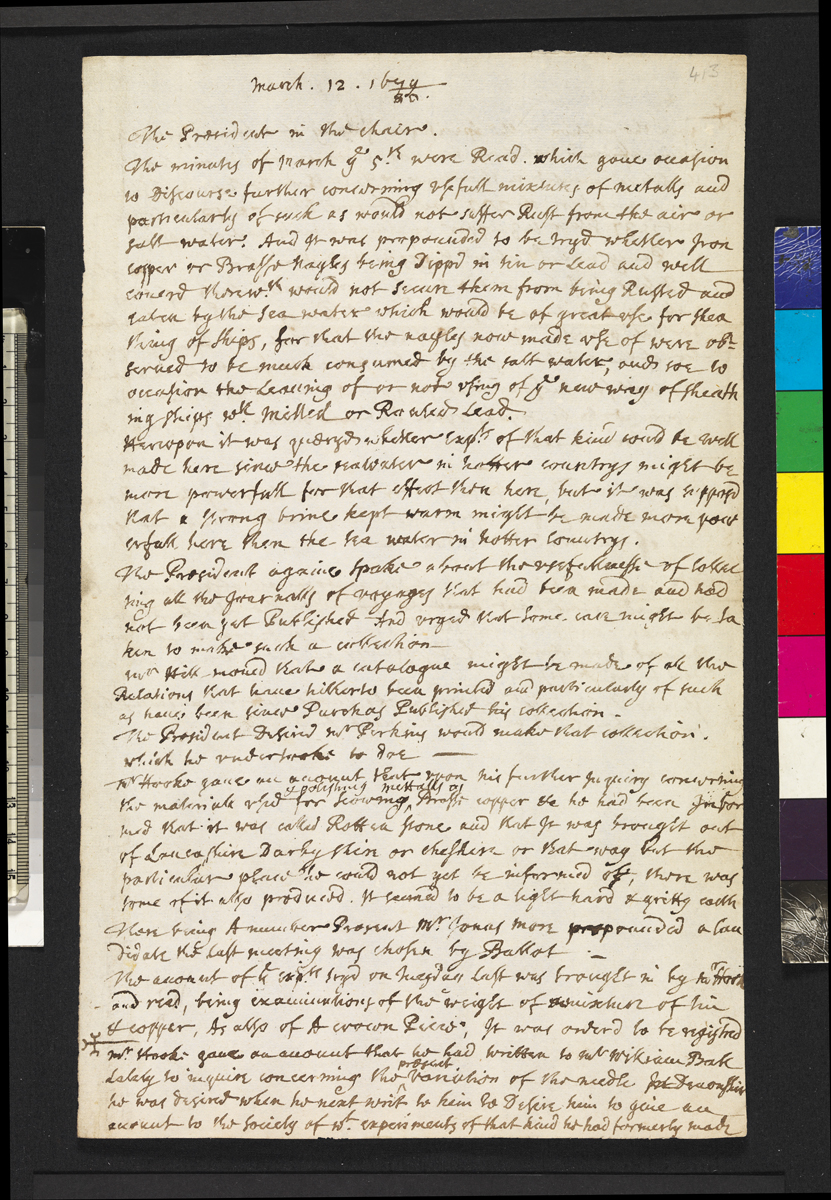 413
March. 12. 1679/80.
The President in the chair.
The minutes of March ye 5th were Read. which gave occasion
to Discourse further concerning usefull mixtures of metalls and
particularly of such as would not suffer Rust from the air or
salt water. And It was propounded to be tryd whether Iron
copper or Brasse Nayles being Dippd in tin or Lead and well
coverd therewth would not secure them from being Rusted and
eaten by the sea water which would be of great use for shea
thing of ships, for that the nayles now made use of were ob-
served to be much consumed by the salt water, and soe to
occasion the Leaving of or not using of ye new way of sheath
ing ships wth Milled or Rowled Lead.
Hereupon it was queryd whether Expts of that kind could be well
made here since the seawater in hotter countrys might be
more powerfull for that effect then here, but it was supposd
that a strong brine kept warm might be made more pow
erfull here then the sea water in hotter Countrys.
The President againe spake about the usefullnesse of Collec
ting all the Journalls of voyages that had been made and had
not been yet Published And urged that some care might be ta
ken to make such a collection
Mr Hill moved that a catalogue might be made of all the
Relations that have hitherto been printed and particularly of such
as have been since Purchas Published his collection.
The President Desired mr Perkins would make that collection.
which he undertooke to doe
Mr Hooke gave an account that upon his further Inquiry concerning
& polishing mettalls as
the materials usd for scowring Brasse copper &c he had been Infor
med that it was called Rotten stone and that It was brought out
of Lancashire Darbyshire or cheshire or that way but the
particular place he could not yet be informed of, there was
some of it also produced. It seemed to be a light hard & gritty earth
There being A number Present Mr Jonas more propounded a Can
didate the last meeting was chosen by Ballot
The account of ye expts tryd on Tuesday last was brought in by mr Hook
and read, being examinations of the weight of mixture of tin
& copper, As also of A crown Piece, It was orderd to be registred
mr Hooke gave an account that he had written to mr William Ball
present
Lately to inquire concerning the variation of the needle In Devonshire
he was desired when he next writ to him to Desire him to give an
account to the society of wt experiments of that kind he had formerly made